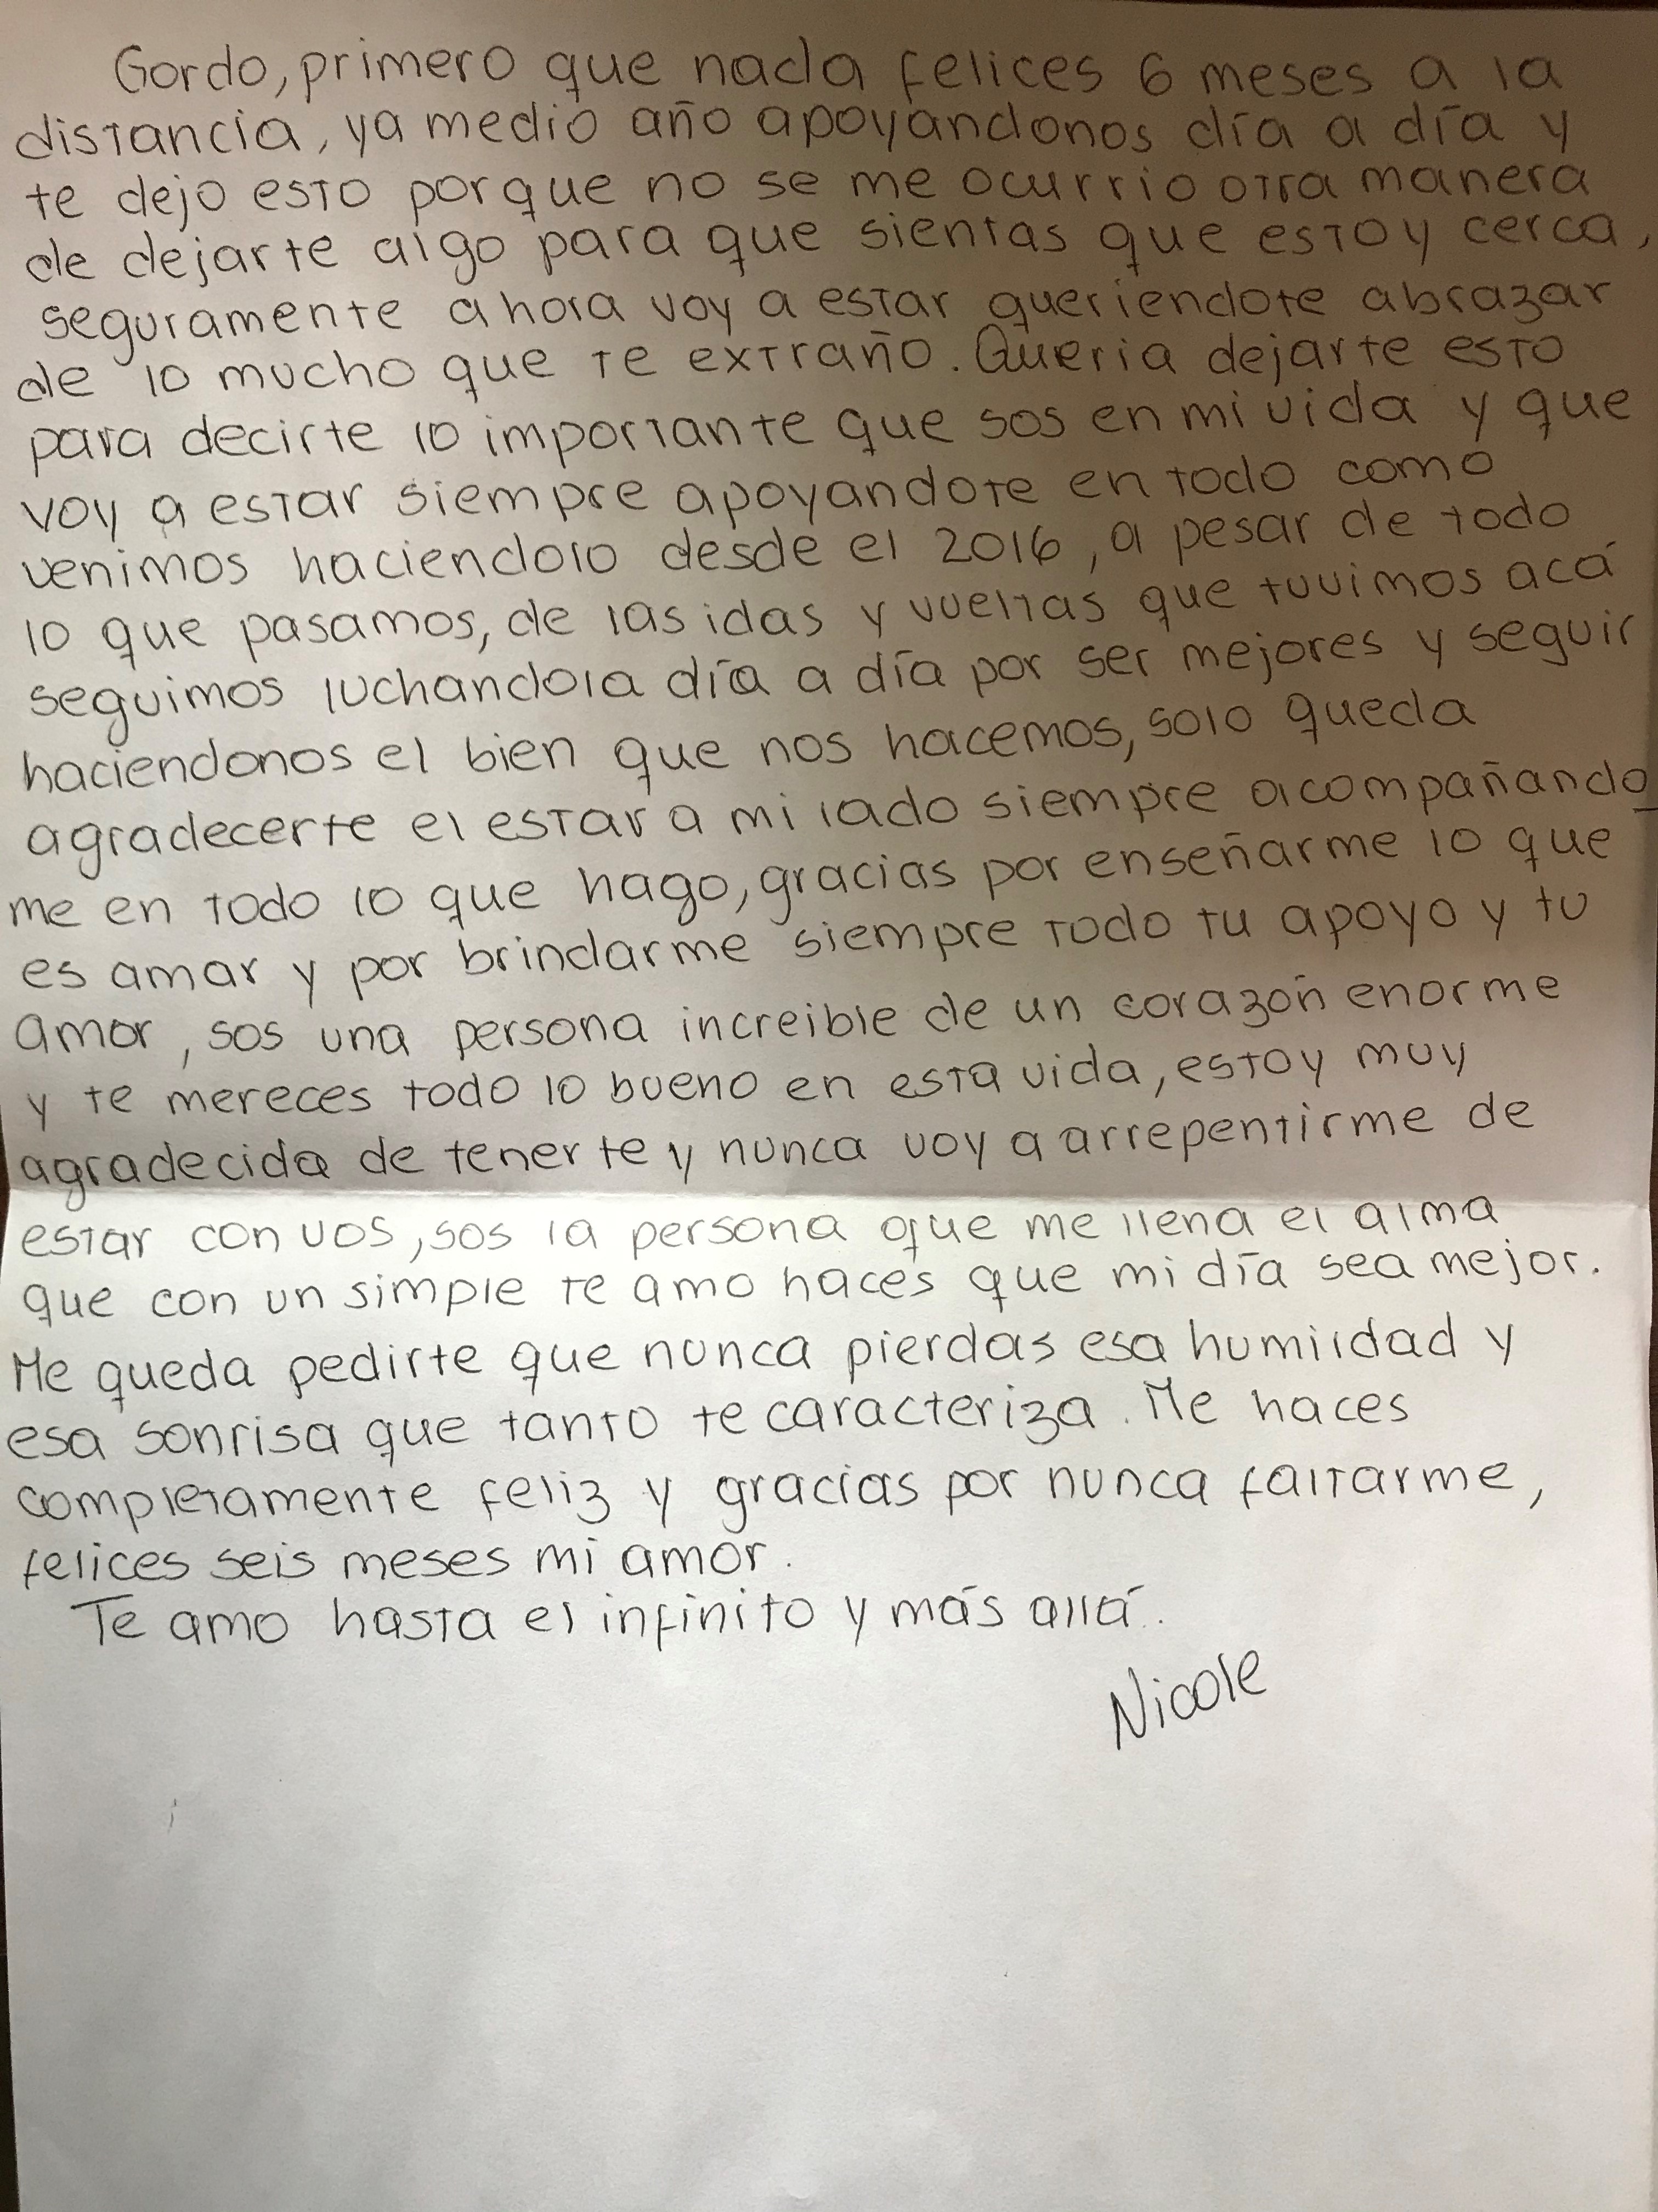 Gordo, primero que nada felices 6 meses a la
distancia, ya medio año apoyandonos día a día y
te dejo esto porque no se me ocurrio otra manera
de dejarte algo para que sientas que estoy cerca,
seguramente ahora voy a estar queriendote abrazar
de lo mucho que te extraño. Queria dejarte esto
para decirte lo importante que sos en mi vida y que
voy a estar siempre apoyandote en todo como
venimos haciendolo desde el 2016, a pesar de todo
lo que pasamos, de las idas y vueltas que tuvimos acá
seguimos luchandola día a día por ser mejores y seguir
haciendonos el bien que nos hacemos, solo queda
agradecerte el estar a mi lado siempre acompañando_
me en todo lo que hago, gracias por enseñarme lo que
es amar y por brindarme siempre todo tu apoyo y tu
amor, sos una persona increible de un corazón enorme
y te mereces todo lo bueno en esta vida, estoy muy
agradecida de tenerte y nunca voy a arrepentirme de
estar con vos, sos la persona que me llena el alma
que con un simple te amo haces que mi día sea mejor.
Me queda pedirte que nunca pierdas esa humildad y
esa sonrisa que tanto te caracteriza. Me haces
completamente feliz y gracias por nunca faltarme,
felices seis meses mi amor.
Te amo hasta el infinito y más allá.
Nicole